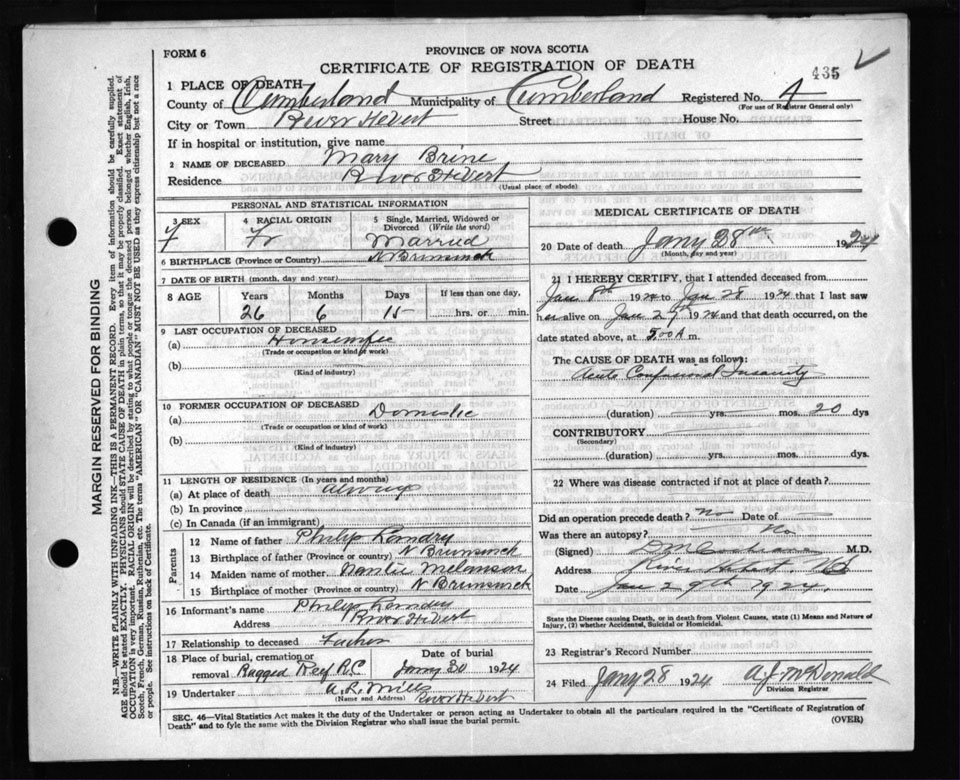 FORM 6
PROVINCE OF NOVA SCOTIA
CERTIFICATE OF REGISTRATION OF DEATH
435
1 PLACE OF DEATH—
County of Cumberland Municipality of Cumberland Registered No. 4
(For use of Registrar General only)
City or Town River Hebert Street House No.
If in hospital or institution, give name
2 NAME OF DECEASED Mary Brine
Residence River Hebert
(Usual place of abode)
PERSONAL AND STATISTICAL INFORMATION
3 SEX 4 RACIAL ORIGIN 5 Single, Married, Widowed or Divorced (Write the word)
F Fr Married
6 BIRTHPLACE (Province or Country) N Brunswick
7 DATE OF BIRTH (month, day and year)
8 AGE Years Months Days If less than one day,
26 6 15 hrs. or min.
9 LAST OCCUPATION OF DECEASED
(a) Housewife
(Trade or occupation or kind of work)
(b)
(Kind of industry)
10 FORMER OCCUPATION OF DECEASED
(a) Domestic
(Trade or occupation or kind of work)
(b)
(Kind of industry)
11 LENGTH OF RESIDENCE (In years and months)
(a) At place of death always
(b) In province
(c) In Canada (if an immigrant)
Parents
12 Name of father Philip Landry
13 Birthplace of father (Province or country) N Brunswick
14 Maiden name of mother Melanson
15 Birthplace of mother (Province or country) N Brunswick
16 Informant's name Philip Landry
Address River Hebert
17 Relationship to deceased Father
18 Place of burial, cremation or removal Ragged Reef R.C. Date of burial Jany 30 1924
19 Undertaker A. L. Mills
(Name and Address) River Hebert
MEDICAL CERTIFICATE OF DEATH
20 Date of death Jany 28 1924
(Month, day and year)
21 I HEREBY CERTIFY, that I attended deceased from
Jan 8th 1924 to Jan 28 1924 that I last saw
her alive on Jan 27 1924 and that death occurred, on
date stated above, at 5.00 A m.
The CAUSE OF DEATH was as follows:
Acute Confusional Insanity
(duration) yrs. mos. 20 dys
CONTRIBUTORY
(Secondary)
(duration) yrs. mos. dys
22 Where was disease contracted if not at place of death?
Did an operation precede death? no Date of
Was there an autopsy? No
(Signed) Cochrane M.D.
Address River Hebert, NS
Date Jan 29th 1924
State the Disease causing Death, or in death from Violent Causes, state (1) Means and Nature of
Injury, (3) whether Accidental, Suicidal or Homicidal.
23 Registrar's Record Number
24 Filed Jany 28 1924 A. J. McDonald
Division Registrar
SEC. 46—Vital Statistics Act makes it the duty of the Undertaker or person acting as Undertaker to obtain all the particulars required in the "Certificate of Registration of
Death" and to fyle the same with the Division Registrar who shall issue the burial permit.
(OVER)
MARGIN RESERVED FOR BINDING
N.B.—WRITE PLAINLY WITH UNFADING INK—THIS IS A PERMANENT RECORD. Every item of information should be carefully supplied.
AGE should be stated EXACTLY. PHYSICIANS should STATE CAUSE OF DEATH in plain terms, so that it may be properly classified. Exact statement of
OCCUPATION is very important. RACIAL ORIGIN will be described by stating to what people or tongue the deceased person belonged whether English, Irish,
Scotch, French, German, Russian, Ruthenian, etc. The terms "AMERICAN" OR "CANADIAN" MUST NOT BE USED as they express citizenship but not a race
or people. See instructions on back of Certificate.